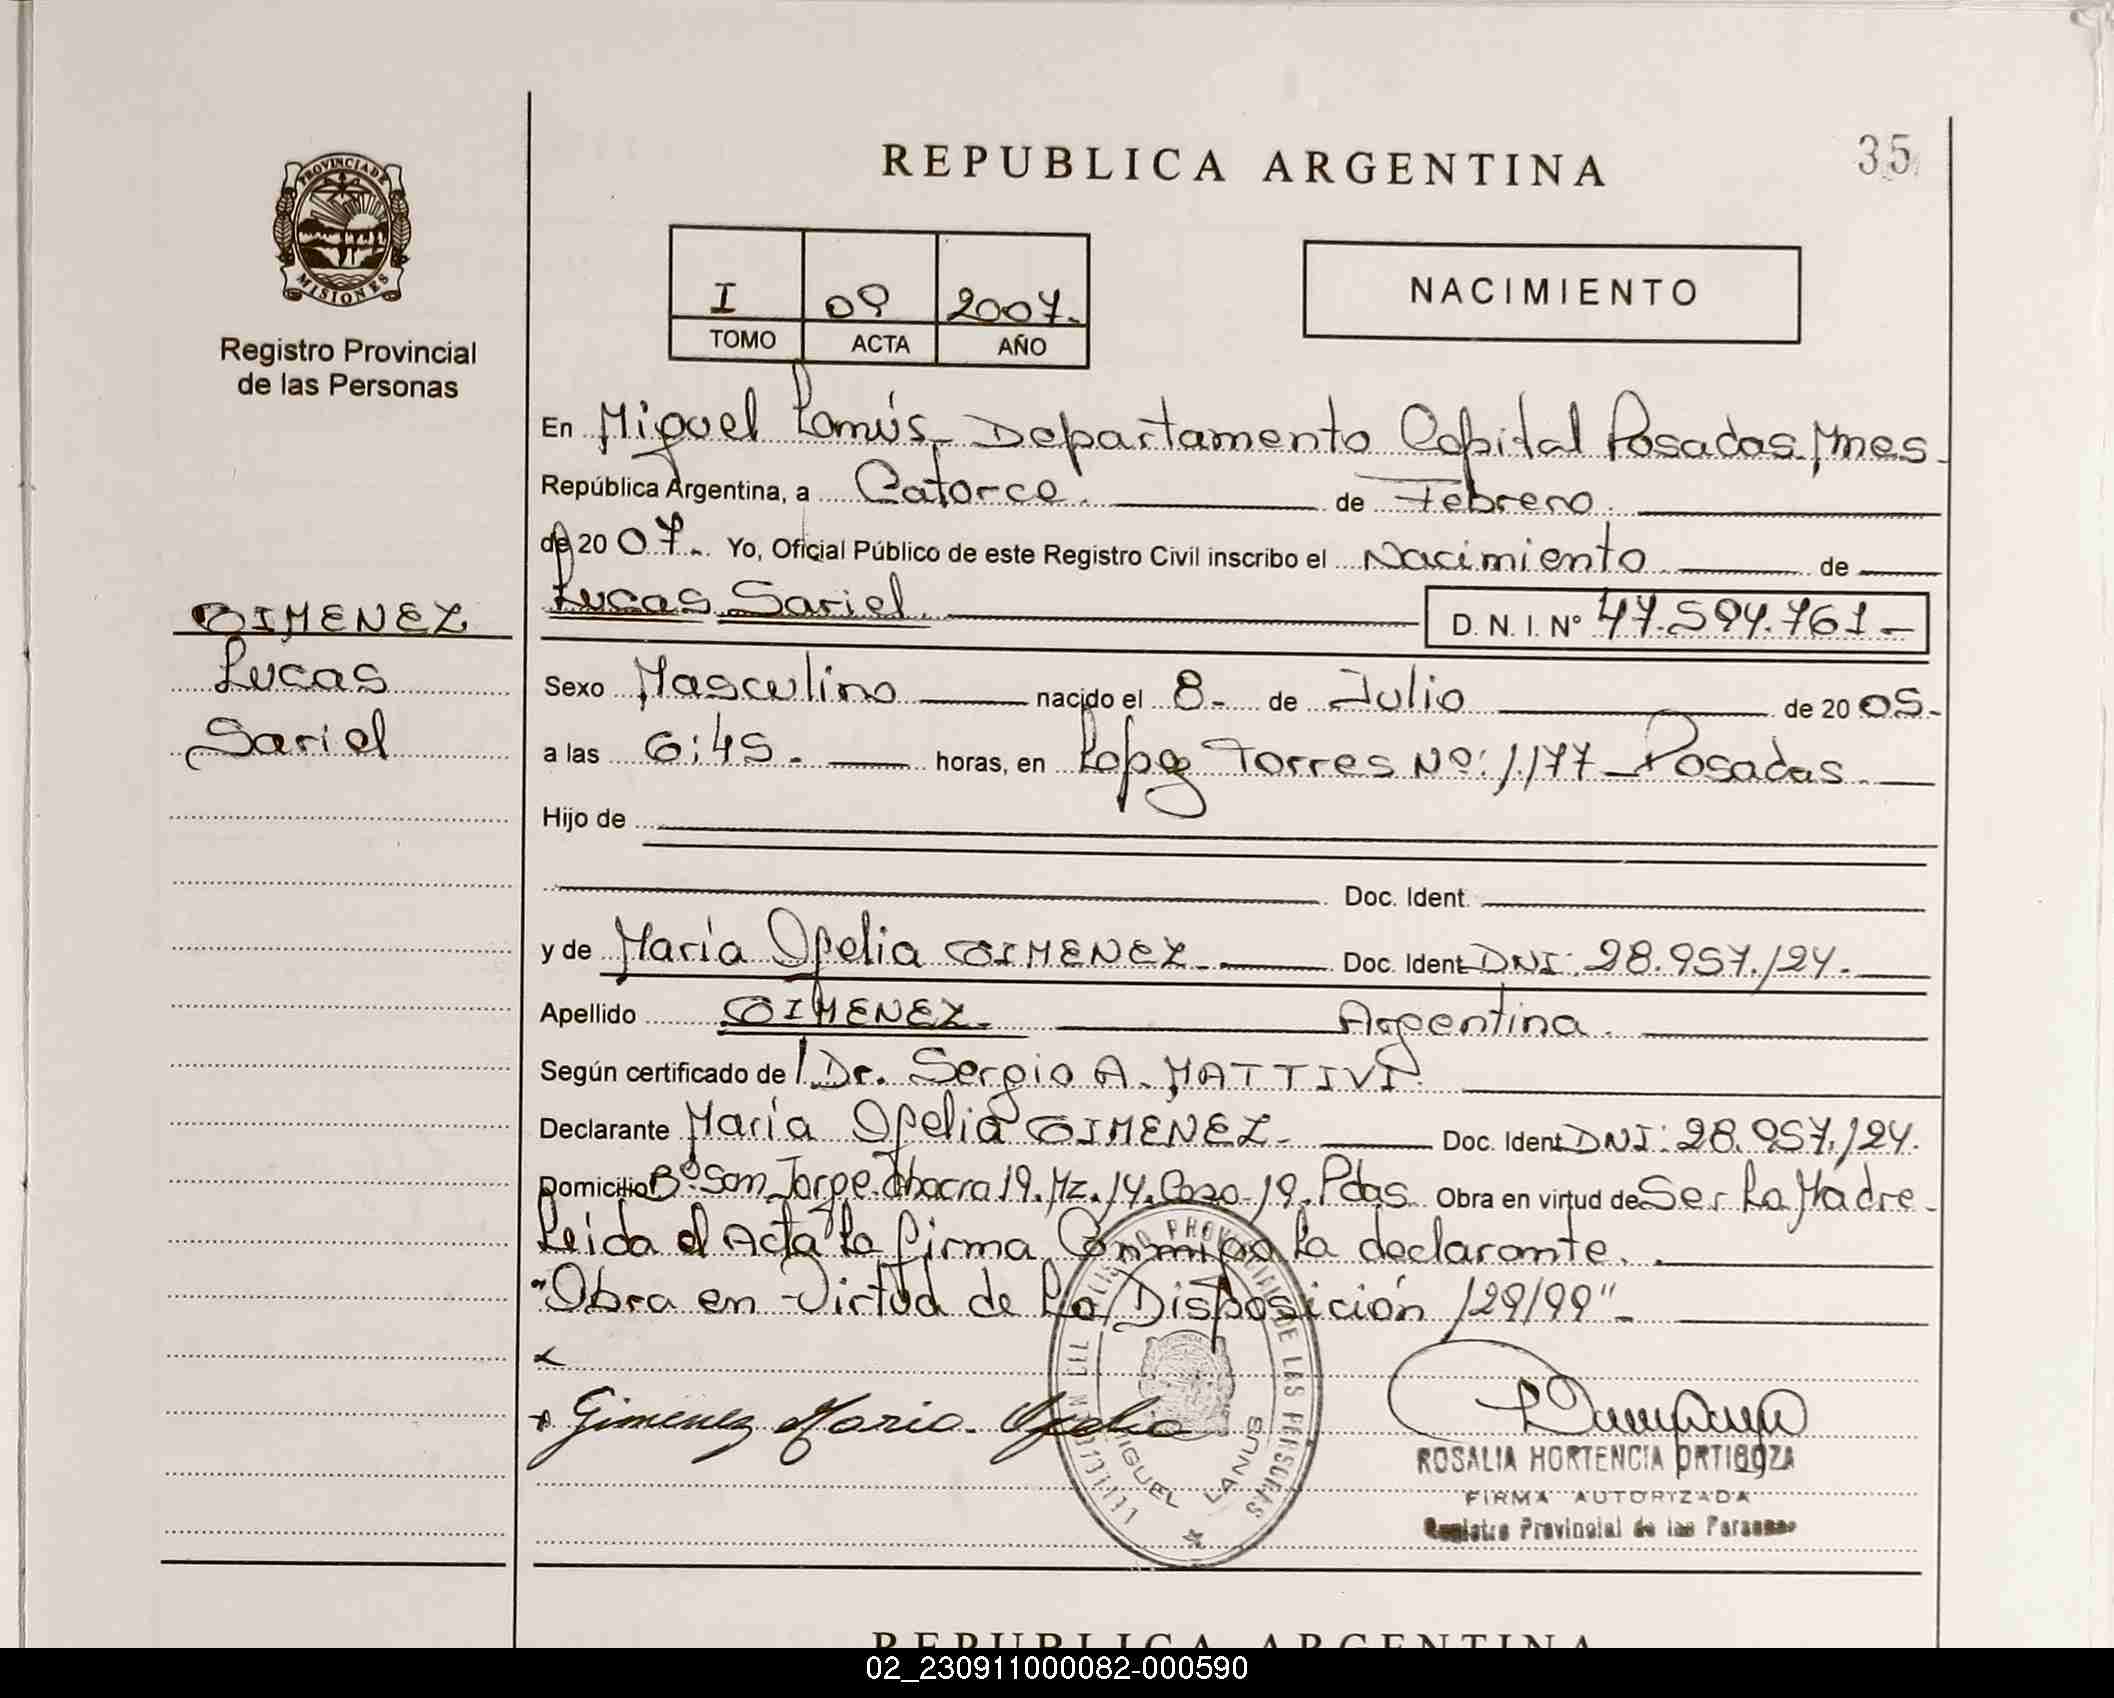 REPUBLICA ARGENTINA
35
PROVINCIA DE
MISIONES
Registro Provincial
de las Personas
I 09 2007.
TOMO ACTA AÑO
NACIMIENTO
En Miguel Lanús Departamento Capital Posadas Mnes
República Argentina, a Catorce de Febrero
de 2007. Yo, Oficial Público de este Registro Civil inscribo el Nacimiento de
Lucas Sariel D. N. I. Nº 47.594.761
GIMENEZ
Lucas
Sariel
Sexo Masculino nacido el 8 de Julio de 2005
a las 6:45 horas, en Torres Nº: 1177 Posadas
Hijo de
Doc. Ident.
y de María Ofelia GIMENEZ Doc. Ident DNI: 28.957.124.
Apellido GIMENEZ Argentina
Según certificado de Dr. Sergio A. MATTIVI
Declarante María Ofelia GIMENEZ Doc. Ident DNI: 28.957.124.
Domicilio Bº San Jorge Chacra 19. Mz. 14. Casa 19. Pdas. Obra en virtud de Ser La Madre
Leida el Acta la firma Conmigo la declarante.
"Obra en Virtud de La Disposición 129/99"
Gimenez Maria Ofelia
PROVINCIAL DE LAS PERSONAS
MIGUEL LANUS
ROSALIA HORTENCIA ORTIGOZA
FIRMA AUTORIZADA
Registro Provincial de las Personas
REPUBLICA ARGENTINA
02_230911000082-000590